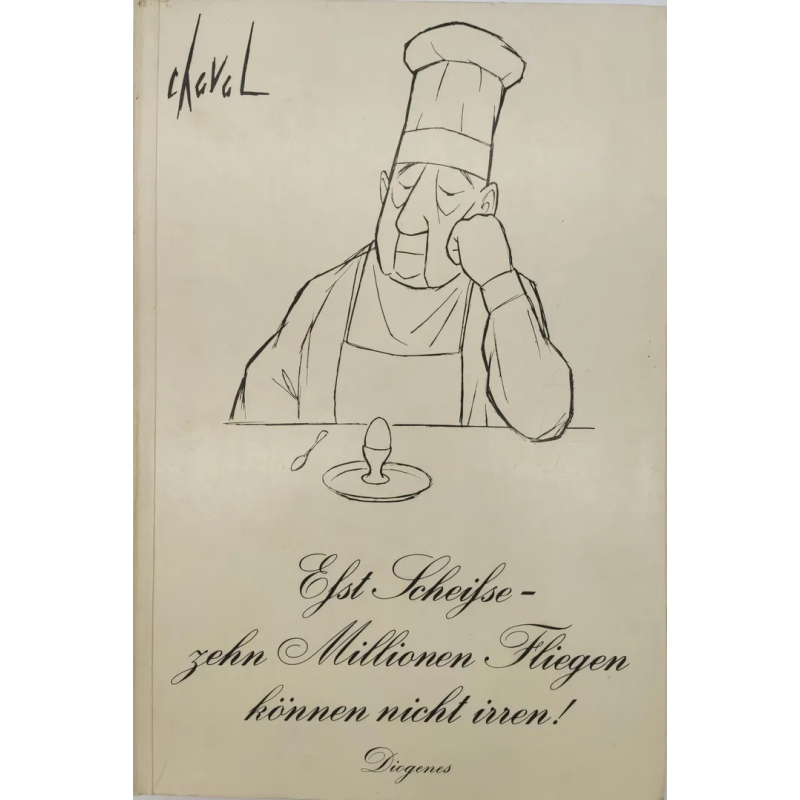 chaval
Eſst Scheiſse -
zehn Millionen Fliegen
können nicht irren!
Diogenes